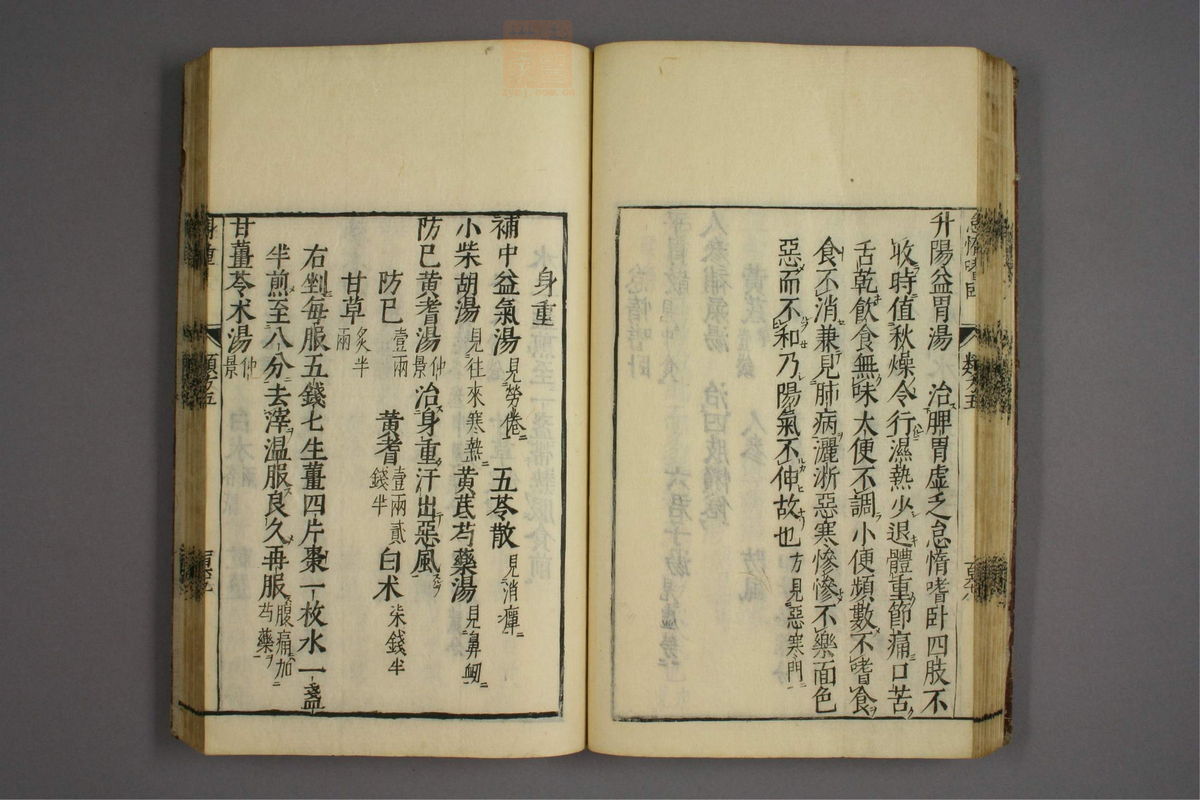 升陽益胃湯 治脾胃虛乏怠惰嗜卧四肢不
收時值秋燥令行濕熱少退體重節痛口苦
舌乾飲食無味大便不調小便頻數不嗜食
食不消兼見肺病灑淅惡寒慘慘不樂面色
惡而不和乃陽氣不伸故也 方見惡寒門
身重
補中益氣湯 見勞倦 五苓散 見消癉
小柴胡湯 見往來寒熱 黃芪芍藥湯 見鼻衂
防已黃耆湯 仲景 治身重汗出惡風
防已 壹兩 黃耆 壹兩貳錢半 白术 柒錢半
甘草 炙半兩
右剉每服五錢七生薑四片棗一枚水一盞
半煎至八分去滓溫服良久再服 腹痛加芍藥
甘薑苓术湯 仲景
身重
類方五